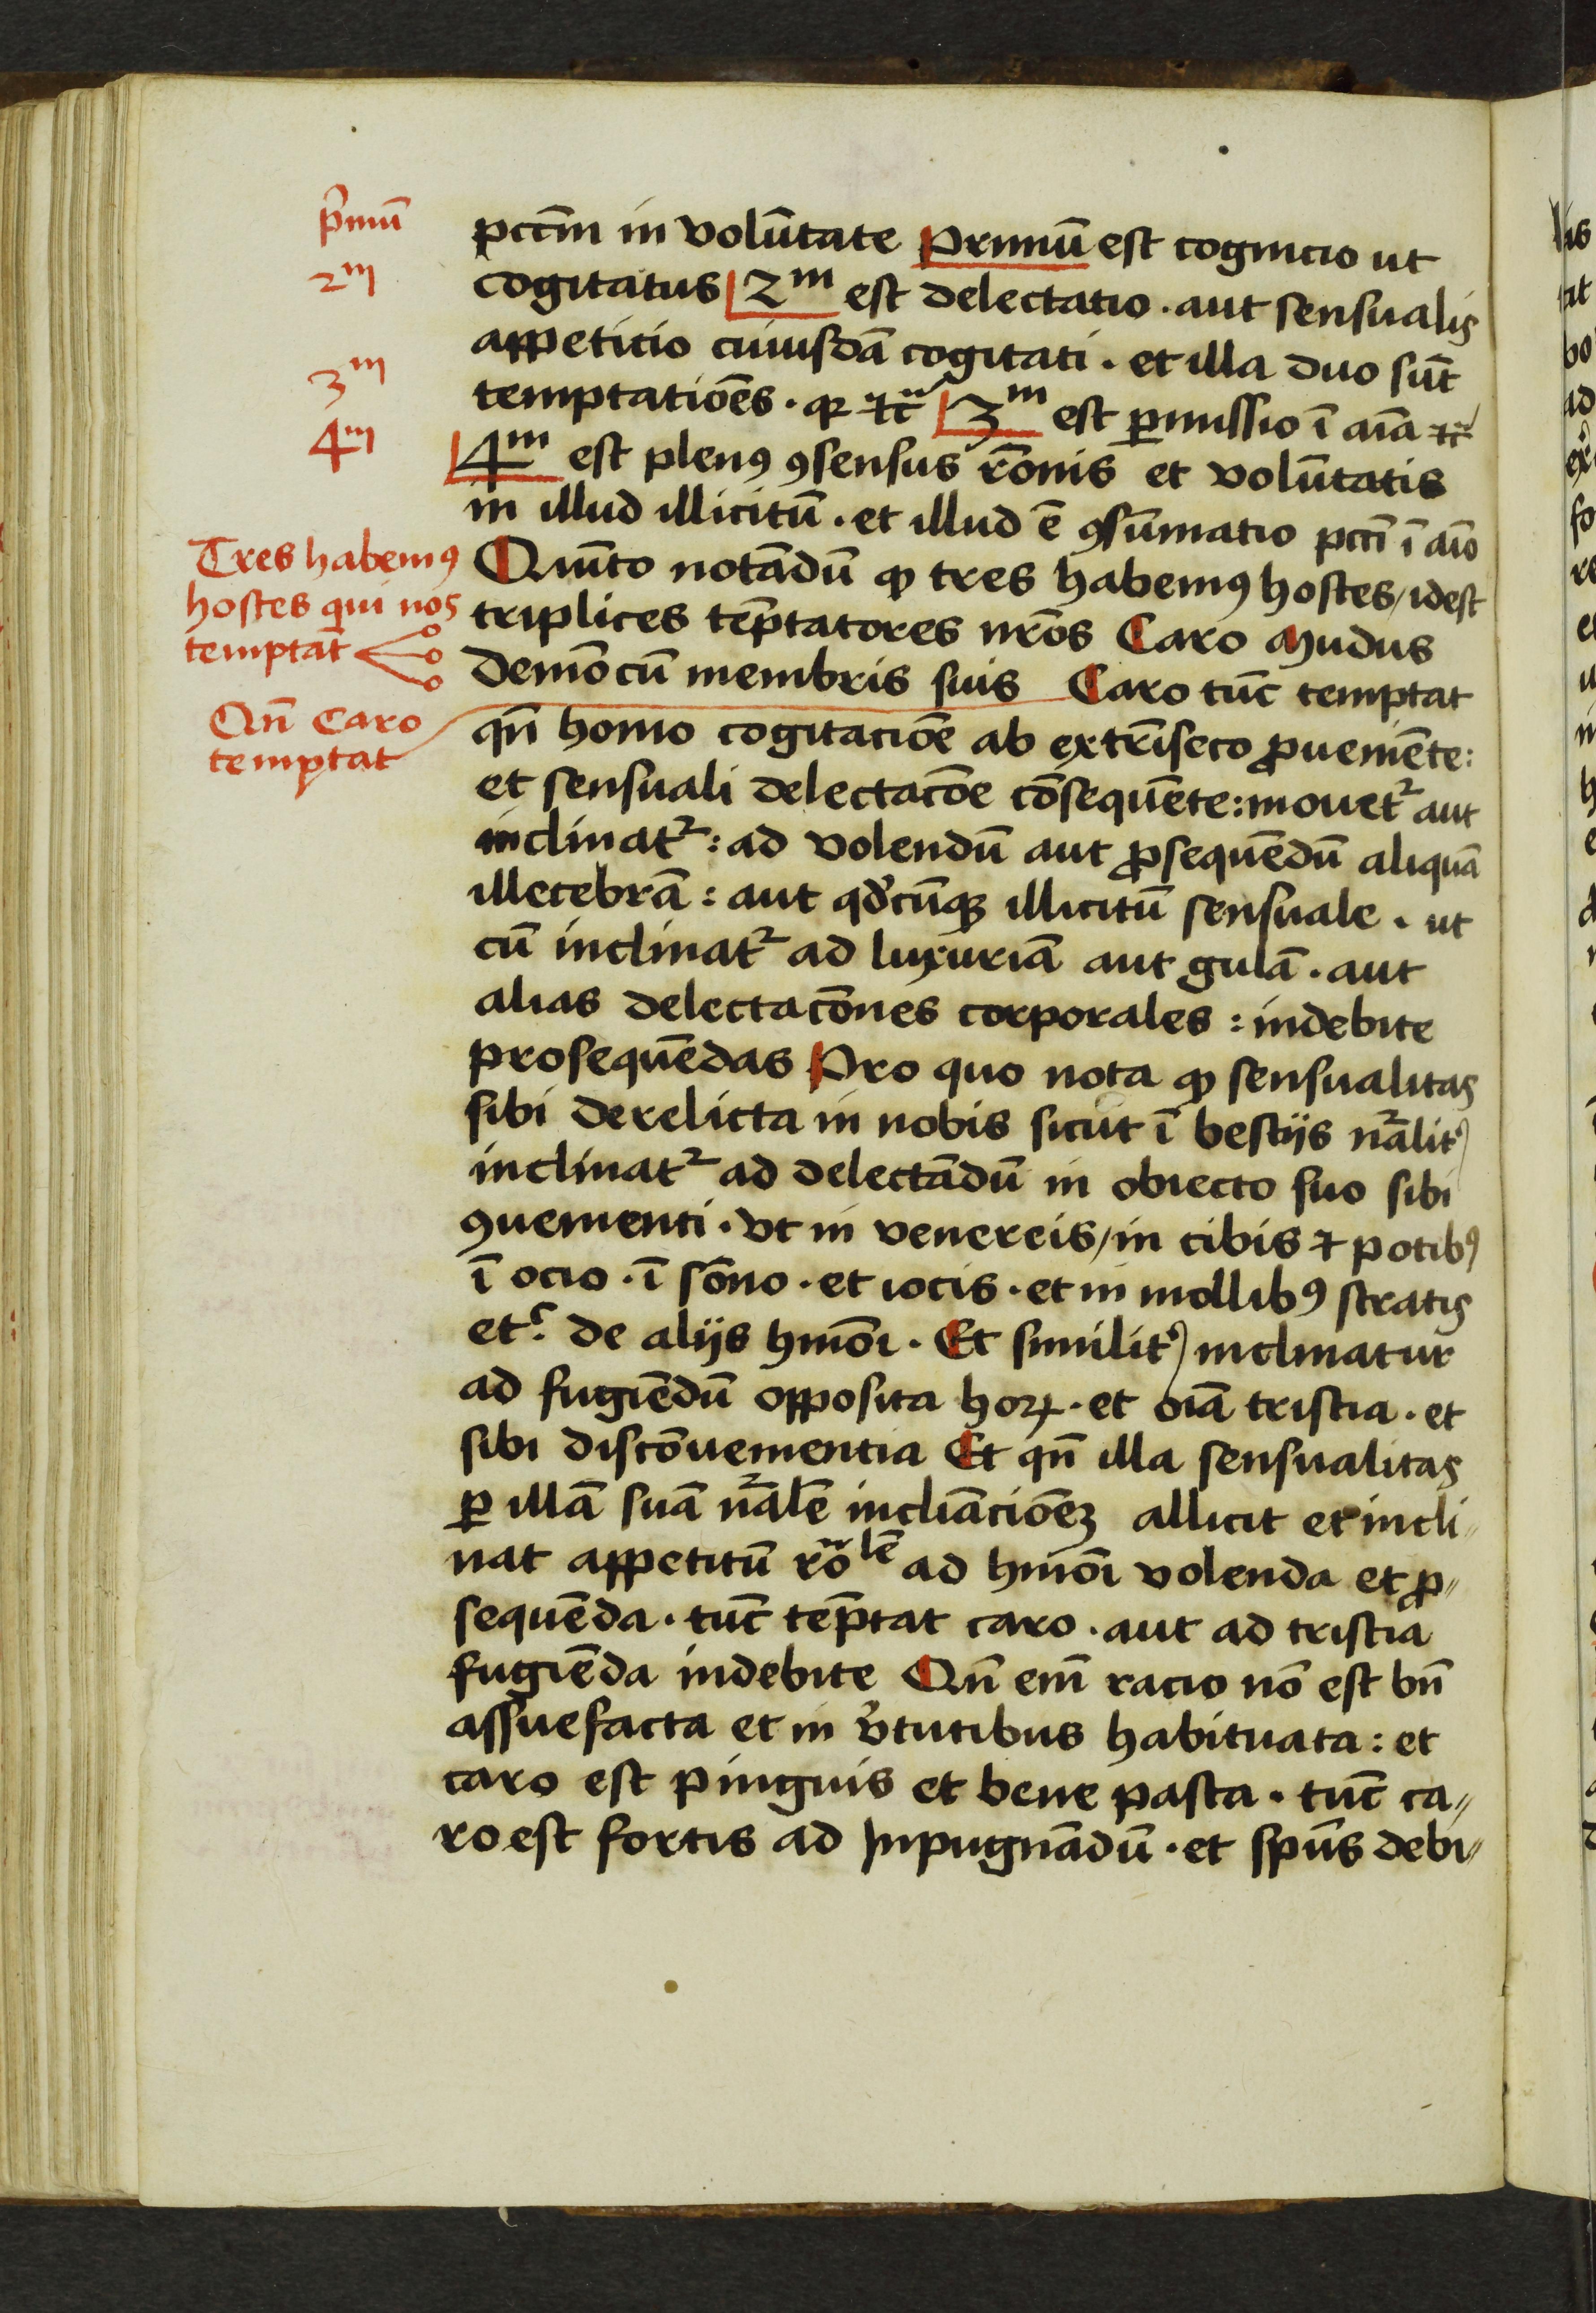 p̄mū
2m
3m
4m
Tres habemꝰ
hostes qui nos
temptāt
Qn̄ Caro
temptat
pctm̄ in volūtate Primū est cognicio ut
cogitatus 2m est delectatio . aut sensualis
appeticio cuiusdā cogitati . et illa duo sūt
temptatiōes . 3m est ꝑmissio ī aīa ⁊c̄
4m est plenꝰ ꝯsensus rōnis et volūtatis
in illud illicitū . et illud ē ꝯsūmatio pcti ī aīo
Quīto notādū ꝙ tres habemꝰ hostes / idest
triplices tēptatores nr̄os Caro Mūdus
demō cū membris suis Caro tūc temptat
qn̄ homo cogitaciōe ab extrīseco ꝓueniēte :
et sensuali delectacōe cōsequēte : mouetᷣ aut
inclinatᷣ : ad volendū aut ꝓsequēdū aliquā
illecebrā : aut qd̓cūqꝫ illicitū sensuale . ut
cū inclinatᷣ ad luxuriā aut gulā . aut
alias delectacōnes corporales : indebite
prosequēdas Pro quo nota ꝙ sensualitas
sibi derelicta in nobis sicut ī bestijs nāˡlit᷑
inclinatᷣ ad delectādū in obiecto suo sibi
ꝯuenienti . vt in venereis / in cibis ⁊ potibꝰ
ī ocio . ī sōno . et iocis . et in mollibꝰ stratis
etc̄. de alijs hmōi . Et similit᷑ inclinatur
ad fugiēdū opposita hoꝝ . et oīa tristia . et
sibi discōuenientia Et qn̄ illa sensualitas
ꝑ illā suā nāˡlē incliāciōeꝫ allicit et incli„
nat appetitū rōlē ad hmōi volenda et ꝓ„
sequēda . tūc tēptat caro . aut ad tristia
fugiēda indebite Qn̄ eni̅ racio nō est bn̄
assuefacta et in v̓tutibus habituata : et
caro est pinguis et bene pasta . tūc ca„
ro est fortis ad inpugnādū . et spūs debi„